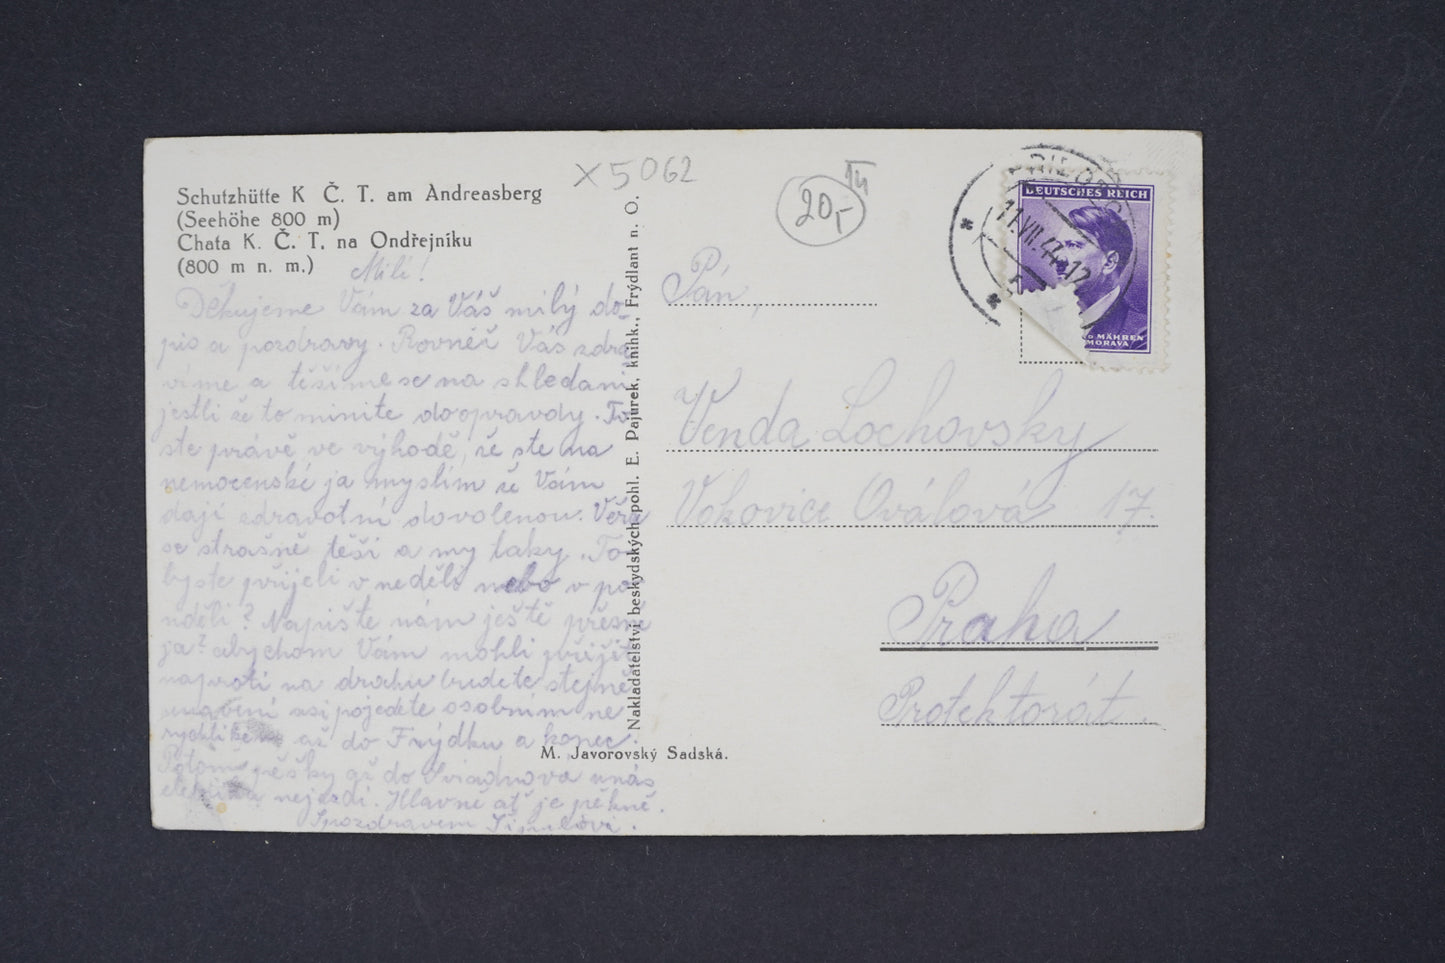 Schutzhütte K Č. T. am Andreasberg
(Seehöhe 800 m)
Chata K. Č. T. na Ondřejníku
(800 m n. m.)
Milí!
Děkujeme Vám za Váš milý do-
pis a pozdravy. Rovněž Vás zdra
víme a těšíme se na shledaní
jestli že to miníte doopravdy. To
ste právě ve výhodě, že ste na
nemocenské ja myslím že Vám
dají zdravotní dovolenou. Věra
se strašně těší a my taky. To
byste přijeli v neděli nebo v po
nděli? Napište nám ještě přesně
abychom Vám mohli přijít
naproti na drahu budete stejně
unavení asi pojedete osobním ne
až do Frýdku a konec.
Potom pěšky až do Sviadnova unás
nejezdí. Hlavně ať je pěkně.
Nakladatelství beskydských pohl. E. Pajurek, knihk., Frýdlant n. O.
M. Javorovský Sadská.
X5062
20,-
DEUTSCHES REICH
11.VII.44-12
MÄHREN
MORAVA
Pán,
Venda Lochovsky
Vokovice Oválová 17.
Praha
Protektorát.